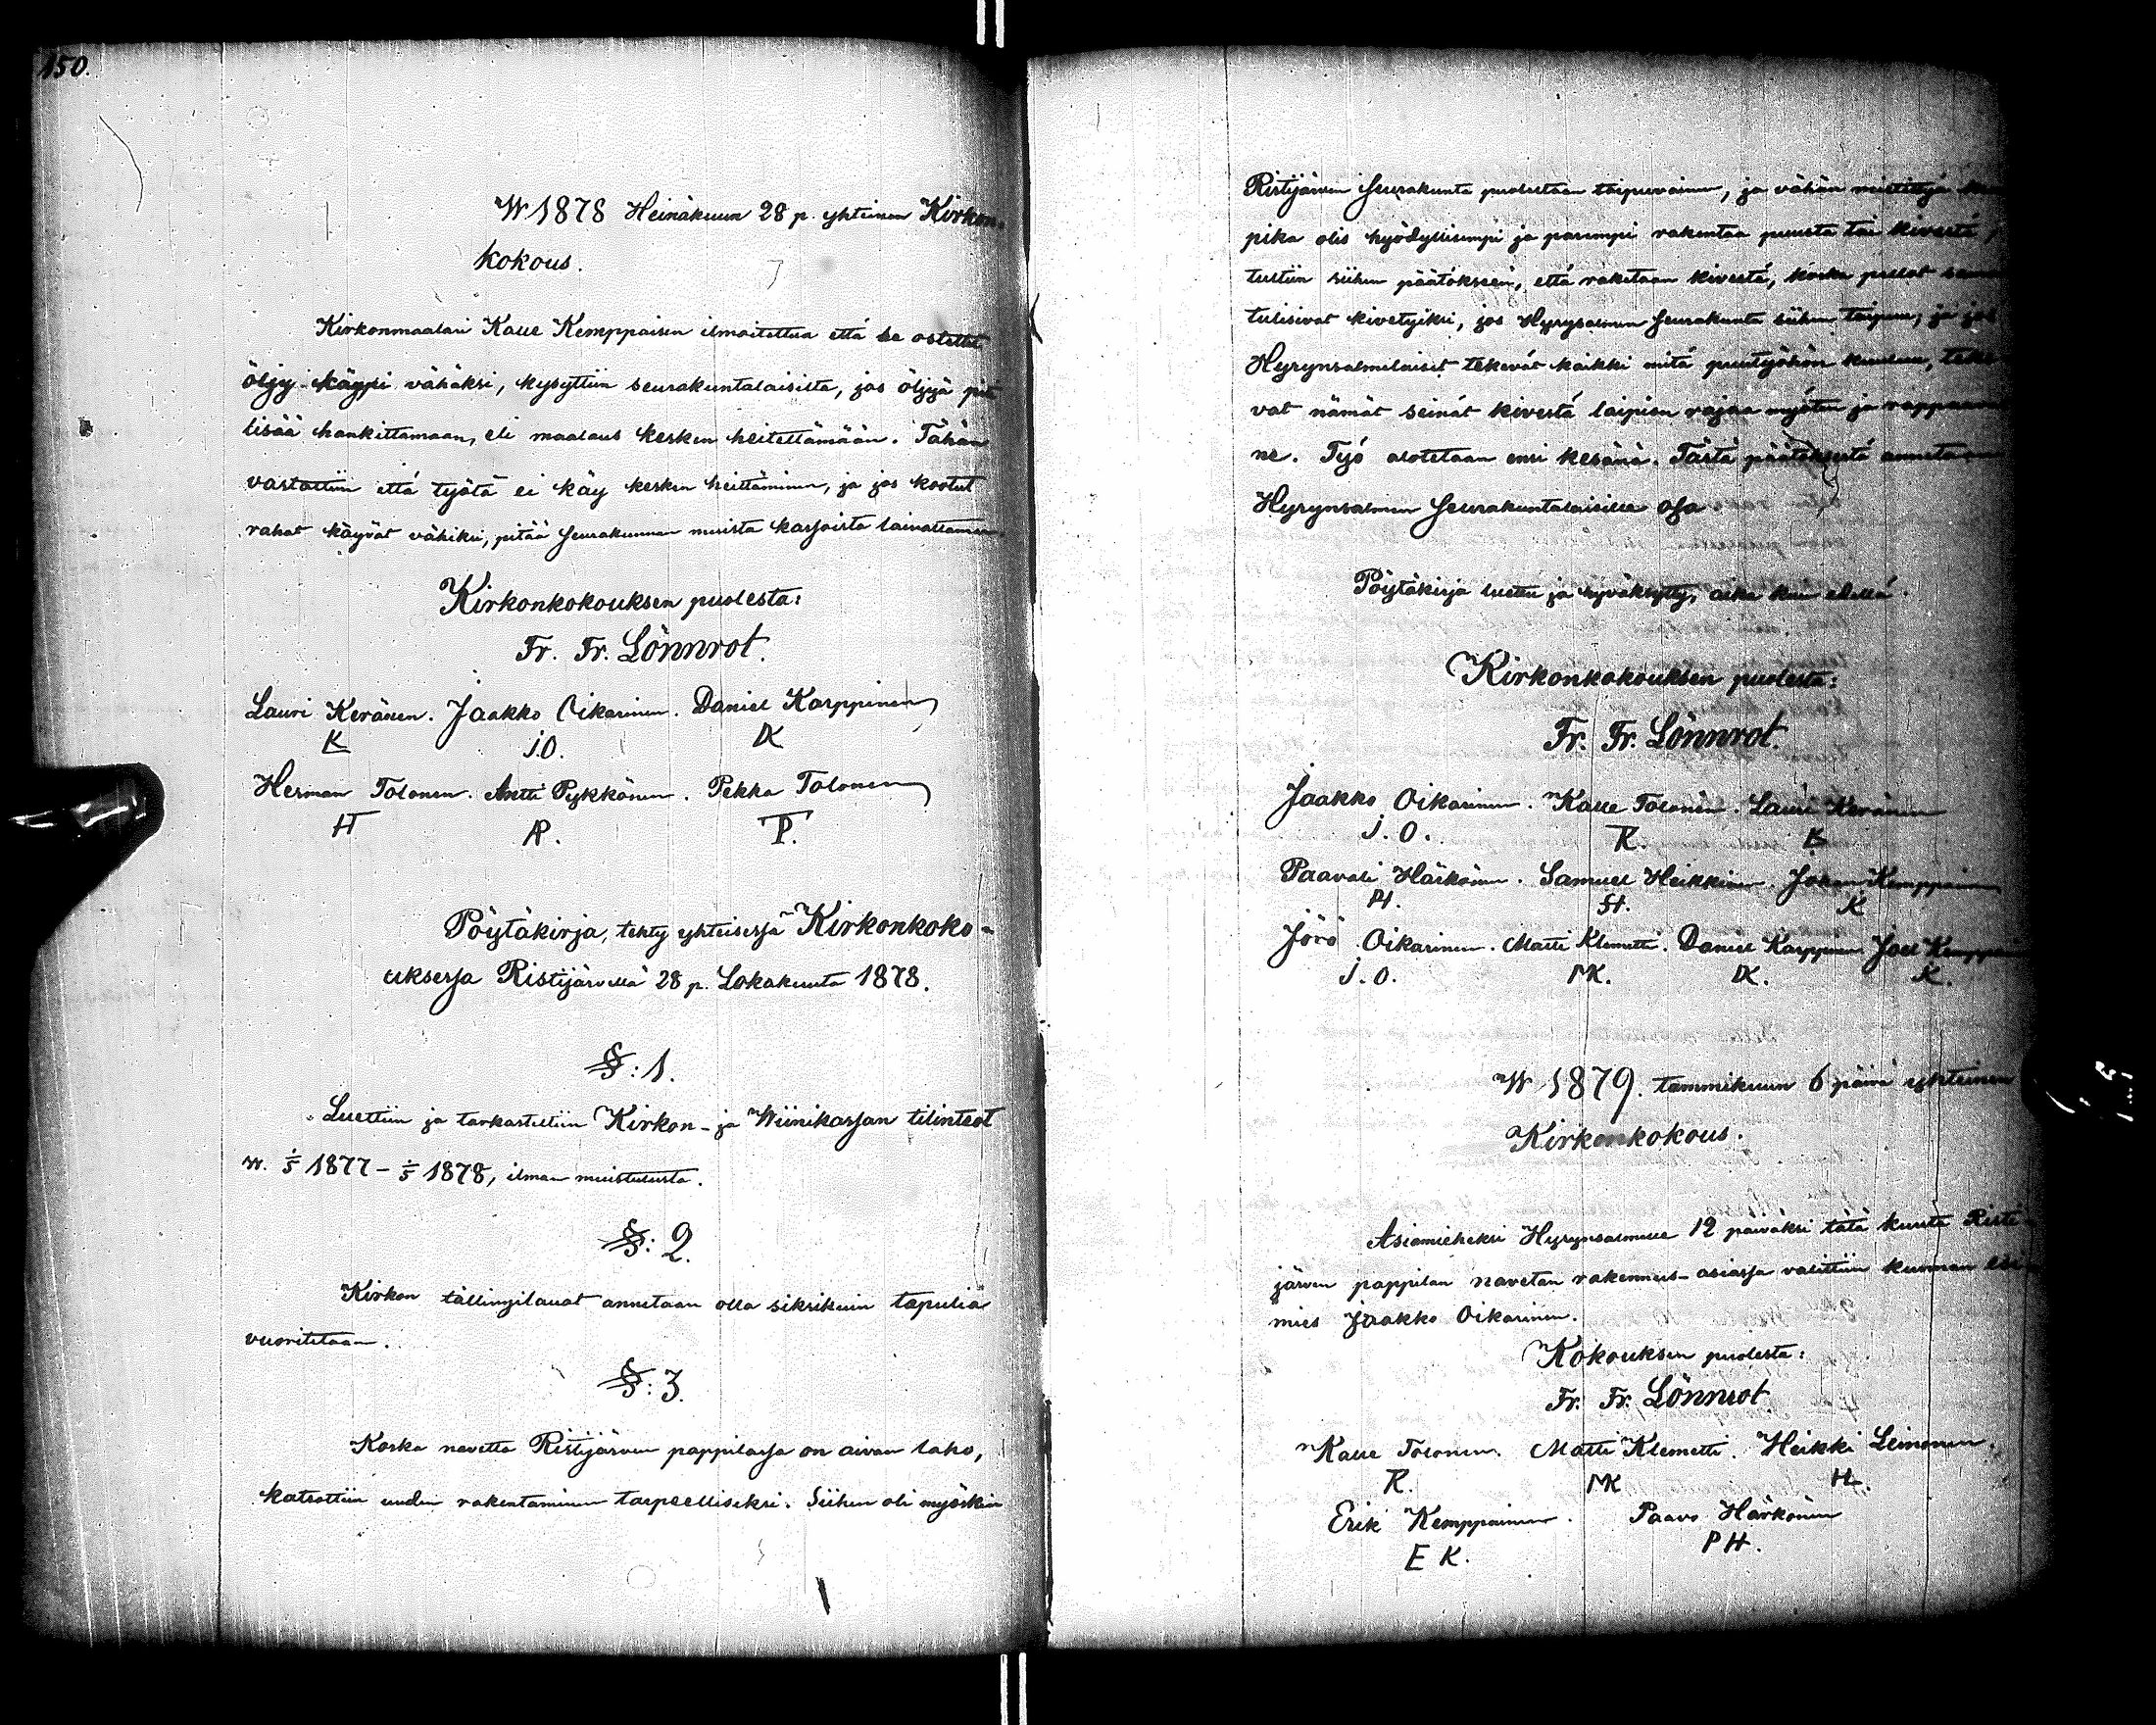 150.
W 1878 Heinäkuun 28 p. yhteinen Kirkon-
kokous.
Kirkonmaalari Kalle Kemppaisen ilmoitettua että se ostettu
öljy käypi vähäksi, kysyttiin seurakuntalaisilta, jos öljyä pitä
lisää hankittamaan, eli maalaus kesken heitettämään. Tähän
vastattiin että työtä ei käy kesken heittäminen, ja jos kootut
rahat käyvät vähiksi, pitää Seurakunnan muista kassoista lainattaman.
Kirkonkokouksen puolesta:
Fr. Fr. Lönnrot.
Lauri Keränen. Jaakko Oikarinen. Daniel Karppinen
K J.O. DK
Herman Tolonen. Antti Pykkönen. Pekka Tolonen
HT AP. TP.
Pöytäkirja, tehty yhteisessä Kirkonkoko-
uksessa Ristijärvellä 28 p. Lokakuuta 1878.
§: 1.
Luettiin ja tarkasteltiin Kirkon- ja Wiinikassan tilinteot
w. 1/5 1877 - 1/5 1878, ilman muistutusta.
§: 2.
Kirkon tällinjilauat annetaan olla siksikuin tapulia
vuoritetaan.
§: 3.
Koska navetta Ristijärven pappilassa on aivan laho,
katsottiin uuden rakentaminen tarpeelliseksi. Siihen oli myöskin
Ristijärven Seurakunta puolestaan taipuvainen, ja vähän mietittyä
pika olis hyödyllisempi ja parempi rakentaa puusta tai kivestä,
tultiin siihen päätökseen, että raketaan kivestä, koska pellot
tulisivat kivetyiksi, jos Hyrynsalmen Seurakunta siihen taipuu; ja jos
Hyrynsalmilaiset tekevät kaikki mitä puutyöhön kuuluu, teke-
vät nämät seinät kivestä laipion rajaa myöten ja rappaavat
ne. Työ alotetaan ensi kesänä. Tästä päätöksestä annetaan
Hyrynsalmen Seurakuntalaisille osa
Pöytäkirja luettu ja hyväksytty, aika kuin edellä.
Kirkonkokouksen puolesta:
Fr. Fr. Lönnrot.
Jaakko Oikarinen. Kalle Tolonen. Lauri Keränen
J. O. K. K
Paavali Härkönen. Samuel Heikkinen. Johan Kemppainen
PH. SH. K
Jörö Oikarinen. Matti Klemetti. Daniel Karppinen Joel Kemppainen
J. O. MK. DK. K.
W 1879. tammikuun 6 päivä yhteinen
Kirkonkokous.
Asiamieheksi Hyrynsalmelle 12 päiväksi tätä kuuta Risti-
järven pappilan navetan rakennus-asiassa valittiin kunnan esi-
mies Jaakko Oikarinen.
Kokouksen puolesta:
Fr. Fr. Lönnrot.
Kalle Tolonen. Matti Klemetti. Heikki Leinonen.
K. MK HL.
Erik Kemppainen. Paavo Härkönen
E K. P H.